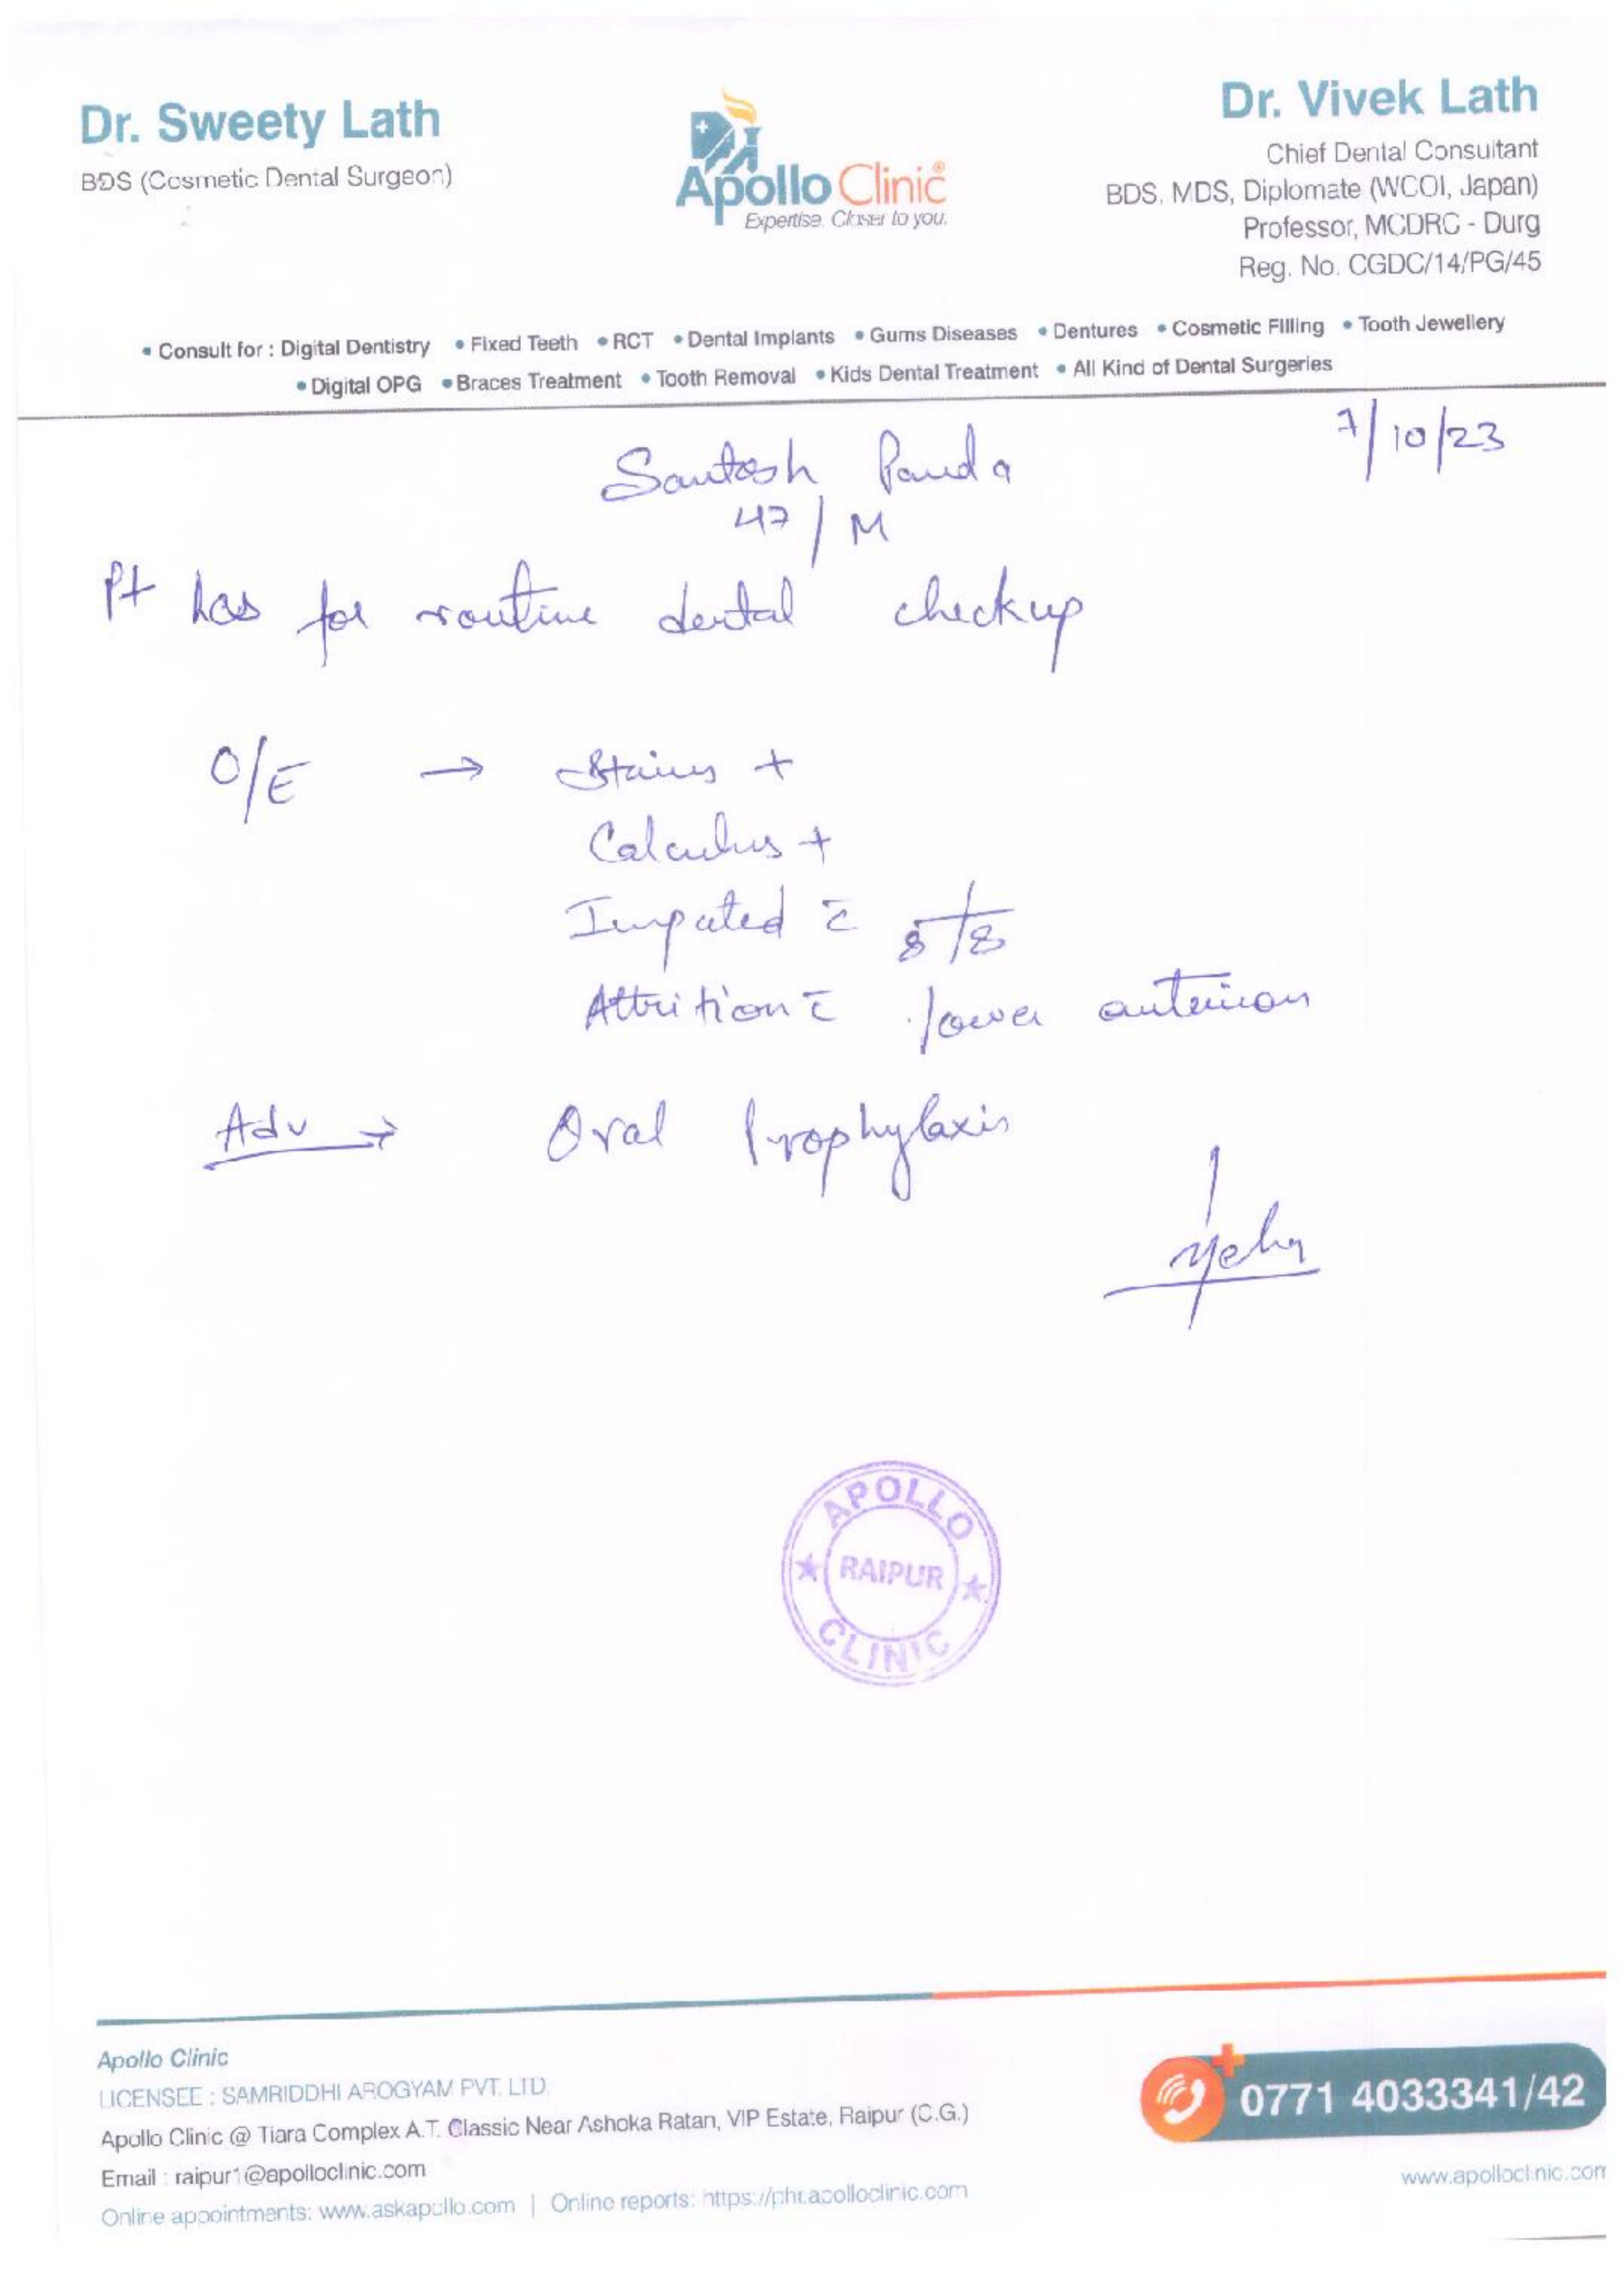 Dr. Sweety Lath
BDS (Cosmetic Dental Surgeon)
Apollo Clinic®
Expertise. Closer to you.
Dr. Vivek Lath
Chief Dental Consultant
BDS, MDS, Diplomate (WCOI, Japan)
Professor, MCDRC - Durg
Reg. No. CGDC/14/PG/45
• Consult for : Digital Dentistry • Fixed Teeth • RCT • Dental Implants • Gums Diseases • Dentures • Cosmetic Filling • Tooth Jewellery
• Digital OPG • Braces Treatment • Tooth Removal • Kids Dental Treatment • All Kind of Dental Surgeries
7/10/23
Santosh Panda
47/M
Pt has for routine dental checkup
O/E → Stains +
Calculus +
Impated c̄ 8/8
Attrition c̄ lower anterion
Adv → Oral Prophylaxis
APOLLO
RAIPUR
CLINIC
Apollo Clinic
LICENSEE : SAMRIDDHI AROGYAM PVT. LTD.
Apollo Clinic @ Tiara Complex A.T. Classic Near Ashoka Ratan, VIP Estate, Raipur (C.G.)
Email : raipur1@apolloclinic.com
Online appointments: www.askapollo.com | Online reports: https://phr.apolloclinic.com
0771 4033341/42
www.apolloclinic.com